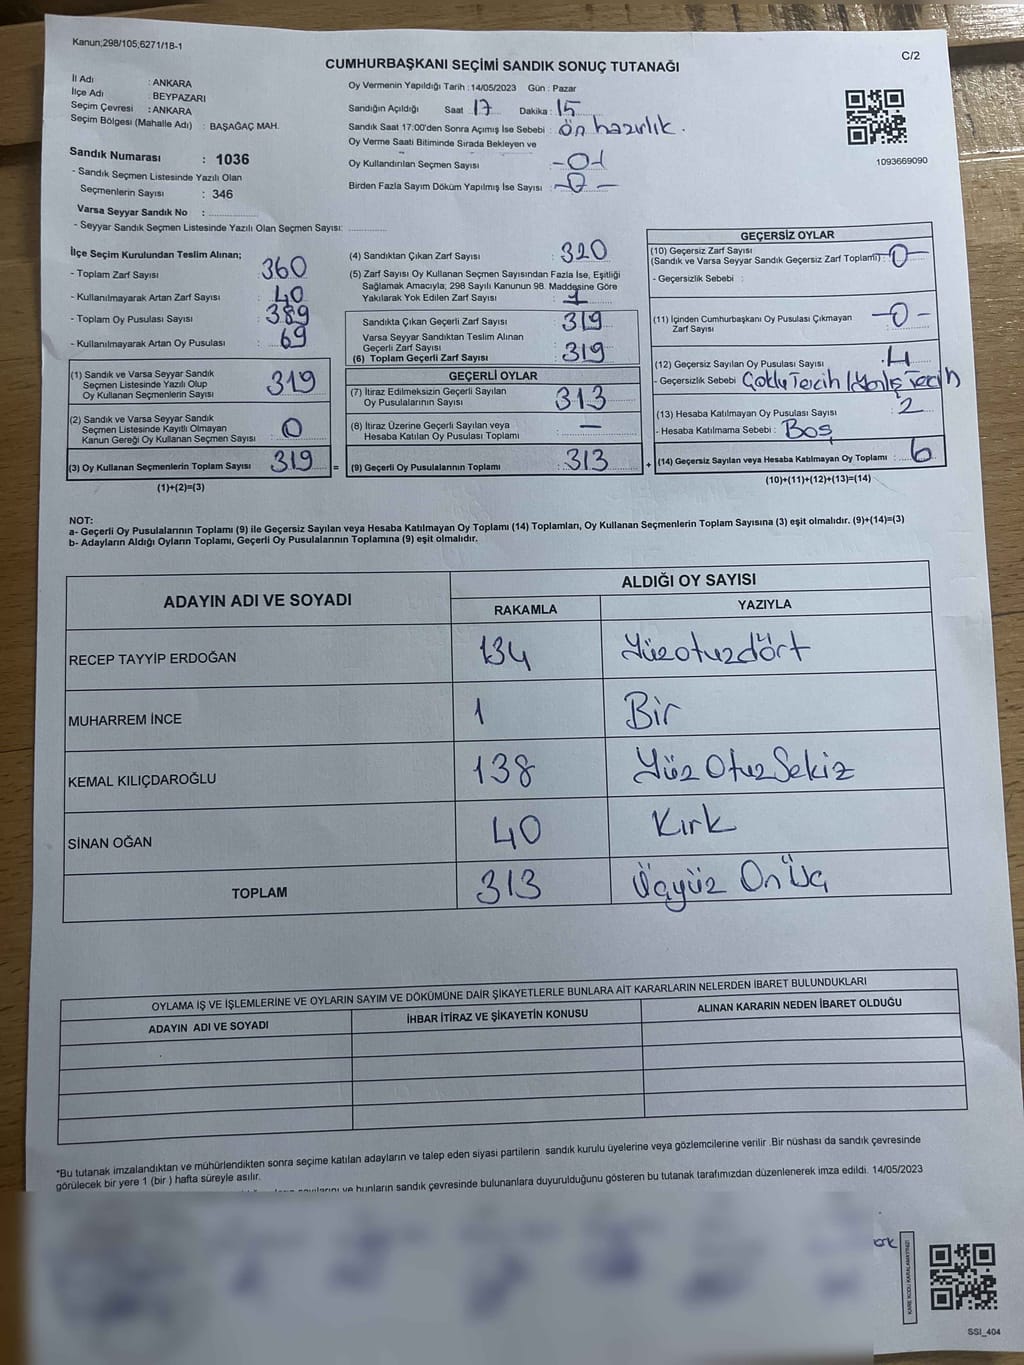 Kanun;298/105;6271/18-1
C/2
CUMHURBAŞKANI SEÇİMİ SANDIK SONUÇ TUTANAĞI
İl Adı : ANKARA
İlçe Adı : BEYPAZARI
Seçim Çevresi : ANKARA
Seçim Bölgesi (Mahalle Adı) : BAŞAĞAÇ MAH.
Sandık Numarası : 1036
- Sandık Seçmen Listesinde Yazılı Olan
Seçmenlerin Sayısı : 346
Varsa Seyyar Sandık No :
- Seyyar Sandık Seçmen Listesinde Yazılı Olan Seçmen Sayısı:
Oy Vermenin Yapıldığı Tarih : 14/05/2023 Gün : Pazar
Sandığın Açıldığı Saat 17 Dakika : 15
Sandık Saat 17:00'den Sonra Açımış İse Sebebi : ön hazırlık.
Oy Verme Saati Bitiminde Sırada Bekleyen ve
Oy Kullandırılan Seçmen Sayısı
Birden Fazla Sayım Döküm Yapılmış İse Sayısı : -0-
1093669090
İlçe Seçim Kurulundan Teslim Alınan;
- Toplam Zarf Sayısı : 360
- Kullanılmayarak Artan Zarf Sayısı : 40
- Toplam Oy Pusulası Sayısı : 389
- Kullanılmayarak Artan Oy Pusulası : 69
(1) Sandık ve Varsa Seyyar Sandık
Seçmen Listesinde Yazılı Olup
Oy Kullanan Seçmenlerin Sayısı : 319
(2) Sandık ve Varsa Seyyar Sandık
Seçmen Listesinde Kayıtlı Olmayan
Kanun Gereği Oy Kullanan Seçmen Sayısı : 0
(3) Oy Kullanan Seçmenlerin Toplam Sayısı : 319 =
(1)+(2)=(3)
(4) Sandıktan Çıkan Zarf Sayısı : 320
(5) Zarf Sayısı Oy Kullanan Seçmen Sayısından Fazla İse, Eşitliği
Sağlamak Amacıyla; 298 Sayılı Kanunun 98. Maddesine Göre
Yakılarak Yok Edilen Zarf Sayısı : 1
Sandıkta Çıkan Geçerli Zarf Sayısı : 319
Varsa Seyyar Sandıktan Teslim Alınan
Geçerli Zarf Sayısı
(6) Toplam Geçerli Zarf Sayısı : 319
GEÇERLİ OYLAR
(7) İtiraz Edilmeksizin Geçerli Sayılan
Oy Pusulalarının Sayısı : 313
(8) İtiraz Üzerine Geçerli Sayılan veya
Hesaba Katılan Oy Pusulası Toplamı : —
(9) Geçerli Oy Pusulalarının Toplamı : 313 +
GEÇERSİZ OYLAR
(10) Geçersiz Zarf Sayısı
(Sandık ve Varsa Seyyar Sandık Geçersiz Zarf Toplamı) : -0-
- Geçersizlik Sebebi :
(11) İçinden Cumhurbaşkanı Oy Pusulası Çıkmayan
Zarf Sayısı -0-
(12) Geçersiz Sayılan Oy Pusulası Sayısı : 4
- Geçersizlik Sebebi Çoklu Tercih / Yanlış Tercih
(13) Hesaba Katılmayan Oy Pusulası Sayısı : 2
- Hesaba Katılmama Sebebi : Boş
(14) Geçersiz Sayılan veya Hesaba Katılmayan Oy Toplamı : 6
(10)+(11)+(12)+(13)=(14)
NOT:
a- Geçerli Oy Pusulalarının Toplamı (9) ile Geçersiz Sayılan veya Hesaba Katılmayan Oy Toplamı (14) Toplamları, Oy Kullanan Seçmenlerin Toplam Sayısına (3) eşit olmalıdır. (9)+(14)=(3)
b- Adayların Aldığı Oyların Toplamı, Geçerli Oy Pusulalarının Toplamına (9) eşit olmalıdır.
ADAYIN ADI VE SOYADI
ALDIĞI OY SAYISI
RAKAMLA YAZIYLA
RECEP TAYYİP ERDOĞAN 134 Yüzotuzdört
MUHARREM İNCE 1 Bir
KEMAL KILIÇDAROĞLU 138 Yüz Otuz Sekiz
SİNAN OĞAN 40 Kırk
TOPLAM 313 Üçyüz On Üç
OYLAMA İŞ VE İŞLEMLERİNE VE OYLARIN SAYIM VE DÖKÜMÜNE DAİR ŞİKAYETLERLE BUNLARA AİT KARARLARIN NELERDEN İBARET BULUNDUKLARI
ADAYIN ADI VE SOYADI İHBAR İTİRAZ VE ŞİKAYETİN KONUSU ALINAN KARARIN NEDEN İBARET OLDUĞU
*Bu tutanak imzalandıktan ve mühürlendikten sonra seçime katılan adayların ve talep eden siyasi partilerin sandık kurulu üyelerine veya gözlemcilerine verilir .Bir nüshası da sandık çevresinde
görülecek bir yere 1 (bir ) hafta süreyle asılır.
ve bunların sandık çevresinde bulunanlara duyurulduğunu gösteren bu tutanak tarafımızdan düzenlenerek imza edildi. 14/05/2023
KARE KODU KARALAMAYINIZ!
SSİ_404